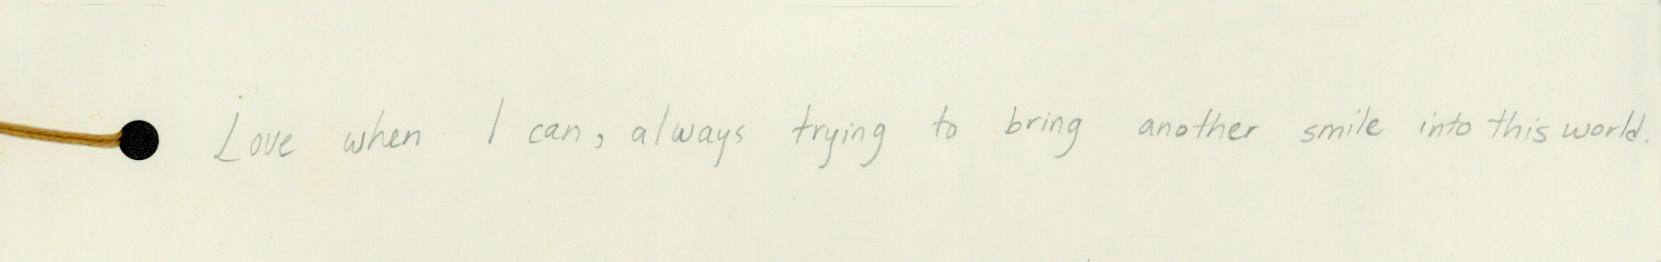 Love when I can, always trying to bring another smile into this world.